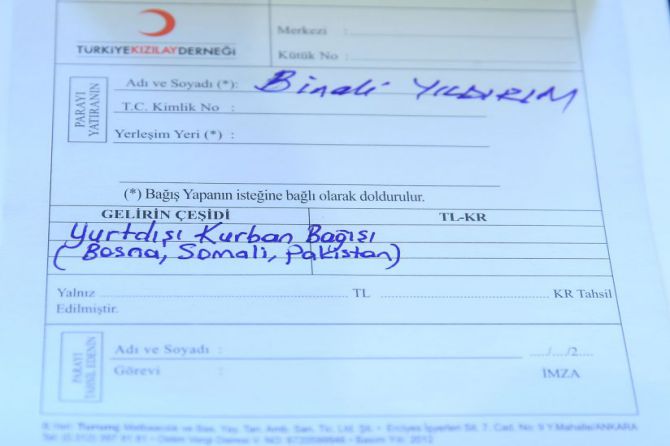 Merkezi :
TÜRKİYEKIZILAYDERNEĞİ
Kütük No :
PARAYI YATIRANIN
Adı ve Soyadı (*): Binali YILDIRIM
T.C. Kimlik No :
Yerleşim Yeri (*) :
(*) Bağış Yapanın isteğine bağlı olarak doldurulur.
GELİRİN ÇEŞİDİ TL-KR
Yurtdışı Kurban Bağışı
(Bosna, Somali, Pakistan)
Yalnız ........ TL ........ KR Tahsil
Edilmiştir.
PARAYI TAHSİL EDENİN
Adı ve Soyadı : ..../..../2....
Görevi : İMZA